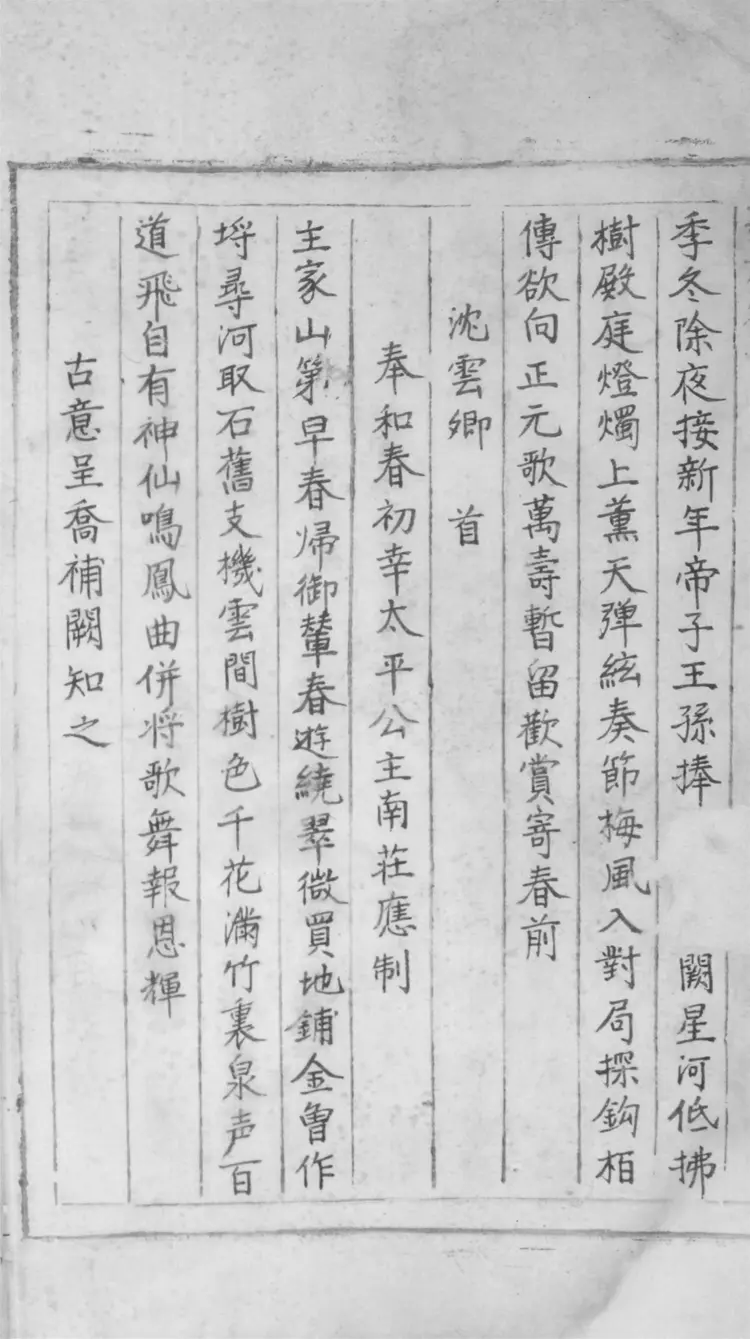 季冬除夜接新年帝子王孫捧闕星河低拂
樹殿庭燈燭上薰天彈絃奏節梅風入對局探鈎柏
傳欲向正元歌萬壽暫留歡賞寄春前
沈雲卿 首
奉和春初幸太平公主南莊應制
主家山第早春帰御輦春遊繞翠微買地鋪金曾作
埒尋河取石舊支機雲間樹色千花滿竹裏泉声百
道飛自有神仙鳴鳳曲併将歌舞報恩輝
古意呈喬補闕知之